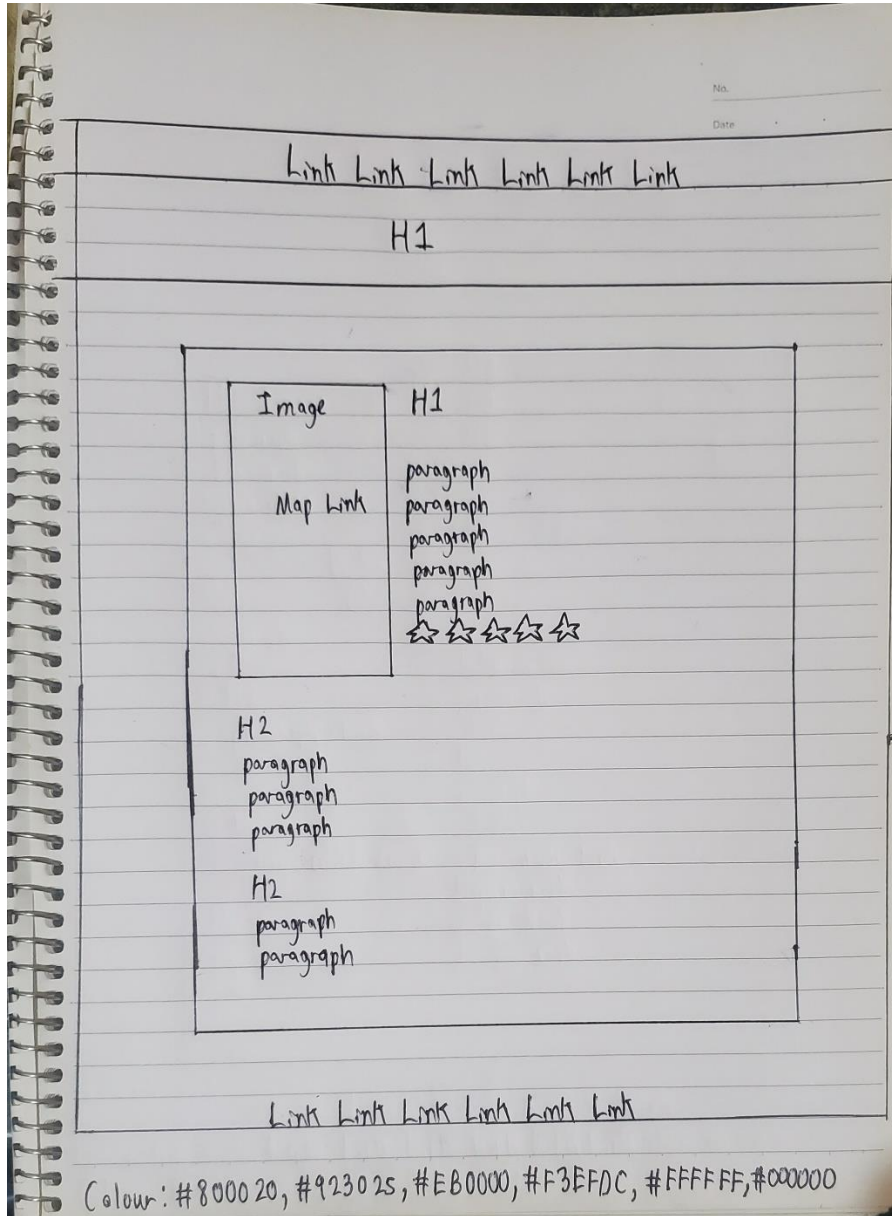 No.
Date
Link Link Link Link Link Link
H1
Image
Map Link
H1
paragraph
paragraph
paragraph
paragraph
paragraph
H2
paragraph
paragraph
paragraph
H2
paragraph
paragraph
Link Link Link Link Link Link
Colour: #800020, #923025, #EB0000, #F3EFDC, #FFFFFF, #000000